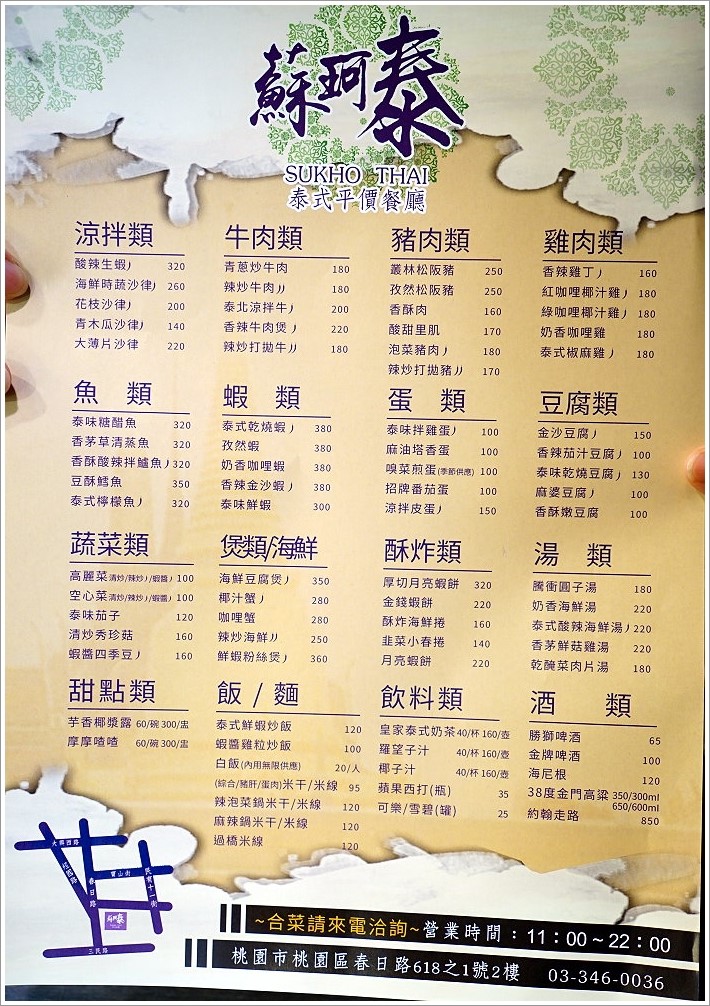 蘇珂泰
SUKHO THAI
泰式平價餐廳
涼拌類
酸辣生蝦 320
海鮮時蔬沙律 260
花枝沙律 200
青木瓜沙律 140
大薄片沙律 220
牛肉類
青蔥炒牛肉 180
辣炒牛肉 180
泰北涼拌牛 200
香辣牛肉煲 220
辣炒打拋牛 180
豬肉類
叢林松阪豬 250
孜然松阪豬 250
香酥肉 160
酸甜里肌 170
泡菜豬肉 180
辣炒打拋豬 170
雞肉類
香辣雞丁 160
紅咖哩椰汁雞 180
綠咖哩椰汁雞 180
奶香咖哩雞 180
泰式椒麻雞 180
魚 類
泰味糖醋魚 320
香茅草清蒸魚 320
香酥酸辣拌鱸魚 320
豆酥鱈魚 350
泰式檸檬魚 320
蝦 類
泰式乾燒蝦 380
孜然蝦 380
奶香咖哩蝦 380
香辣金沙蝦 380
泰味鮮蝦 300
蛋 類
泰味拌雞蛋 100
麻油塔香蛋 100
嗅菜煎蛋(季節供應) 100
招牌番茄蛋 100
涼拌皮蛋 150
豆腐類
金沙豆腐 150
香辣茄汁豆腐 100
泰味乾燒豆腐 130
麻婆豆腐 100
香酥嫩豆腐 100
蔬菜類
高麗菜清炒/辣炒/蝦醬 100
空心菜清炒/辣炒/蝦醬 100
泰味茄子 120
清炒秀珍菇 160
蝦醬四季豆 160
煲類/海鮮
海鮮豆腐煲 350
椰汁蟹 280
咖哩蟹 280
辣炒海鮮 250
鮮蝦粉絲煲 360
酥炸類
厚切月亮蝦餅 320
金錢蝦餅 220
酥炸海鮮捲 160
韭菜小春捲 140
月亮蝦餅 220
湯 類
騰衝圓子湯 180
奶香海鮮湯 220
泰式酸辣海鮮湯 220
香茅鮮菇雞湯 220
乾醃菜肉片湯 180
甜點類
芋香椰漿露 60/碗 300/盅
摩摩喳喳 60/碗 300/盅
飯 / 麵
泰式鮮蝦炒飯 120
蝦醬雞粒炒飯 100
白飯(內用無限供應) 20/人
(綜合/豬肝/蛋肉)米干/米線 95
辣泡菜鍋米干/米線 120
麻辣鍋米干/米線 120
過橋米線 120
飲料類
皇家泰式奶茶 40/杯 160/壺
羅望子汁 40/杯 160/壺
椰子汁 40/杯 160/壺
蘋果西打(瓶) 35
可樂/雪碧(罐) 25
酒 類
勝獅啤酒 65
金牌啤酒 100
海尼根 120
38度金門高粱 350/300ml
650/600ml
約翰走路 850
大興西路
寶山街
春日路
民有十一街
蘇珂泰
三民路
~合菜請來電洽詢~營業時間：11：00～22：00
桃園市桃園區春日路618之1號2樓 03-346-0036